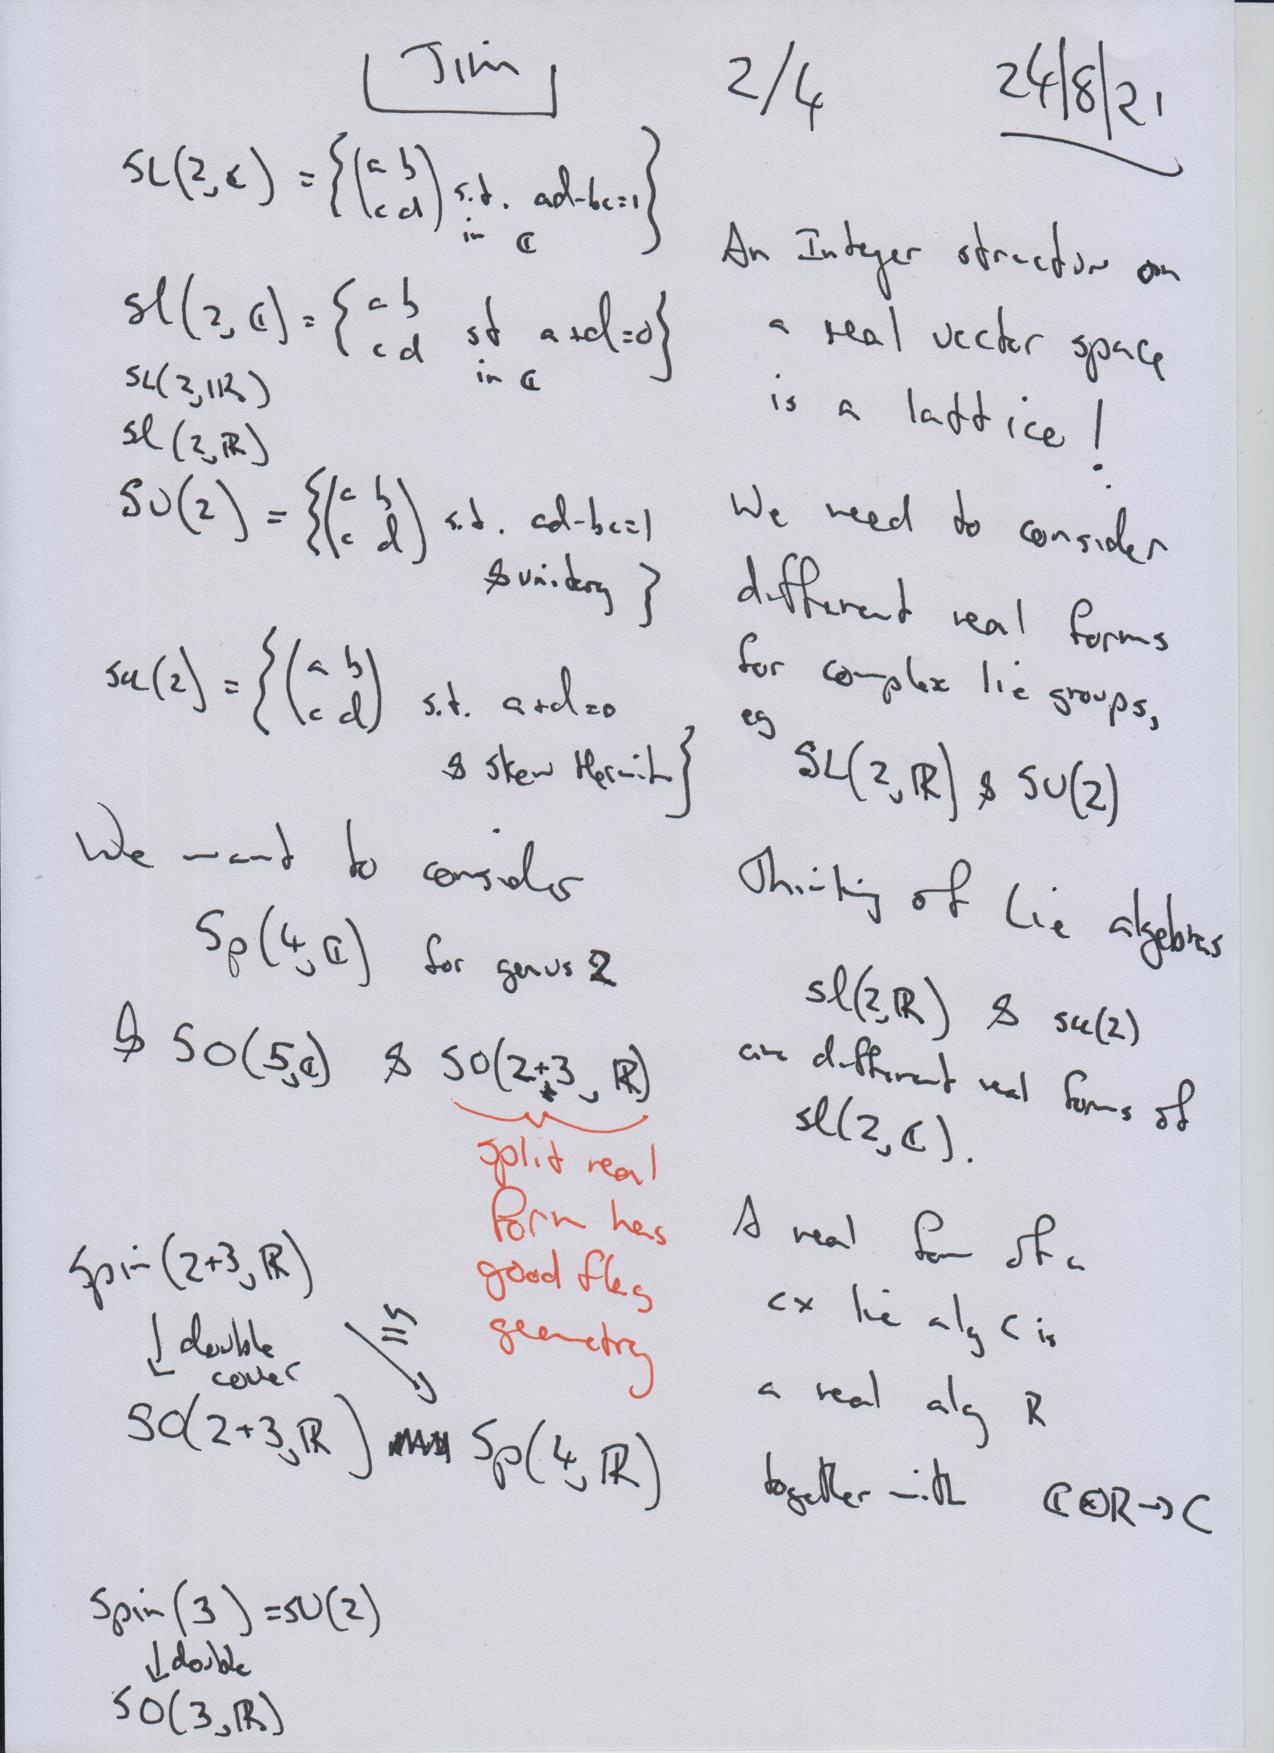 Jim 2/4 24/8/21
SL(2,ℂ) = {(a b
c d) s.t. ad-bc=1
in ℂ}
sl(2,ℂ) = {a b
c d st a+d=0
in ℂ}
SL(2,ℝ)
sl(2,ℝ)
SU(2) = {(a b
c d) s.t. ad-bc=1
& unitary}
su(2) = {(a b
c d) s.t. a+d=0
& skew Hermitn}
We want to consider
Sp(4,ℂ) for genus 2
& SO(5,ℂ) & SO(2+3,ℝ)
split real
form has
good flag
geometry
Spin(2+3,ℝ)
↓ double
cover
≅
SO(2+3,ℝ) Sp(4,ℝ)
Spin(3) = SU(2)
↓ double
SO(3,ℝ)
An Integer structure on
a real vector space
is a lattice!
We need to consider
different real forms
for complex lie groups,
eg
SL(2,ℝ) & SU(2)
Thinking of Lie algebras
sl(2,ℝ) & su(2)
are different real forms of
sl(2,ℂ).
A real form of a
cx lie alg C is
a real alg R
together with ℂ⊗R→C